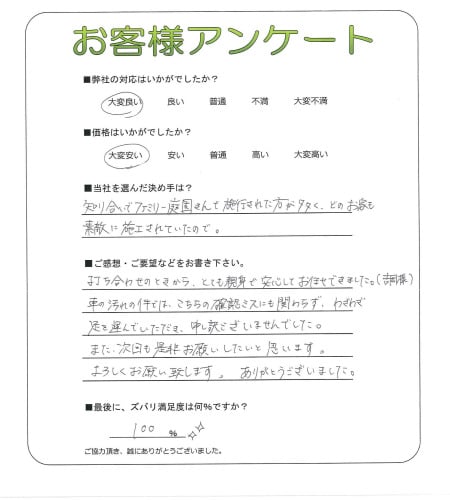 お客様アンケート
■弊社の対応はいかがでしたか?
大変良い 良い 普通 不満 大変不満
■価格はいかがでしたか?
大変安い 安い 普通 高い 大変高い
■当社を選んだ決め手は?
知り合いでファミリー庭園さんで施行された方が多く、どのお家も
素敵に施工されていたので。
■ご感想・ご要望などをお書き下さい。
打ち合わせのときから、とても親身で安心してお任せできました。
車の汚れの件では、こちらの確認ミスにも関わらず、わざわざ
足を運んでいただき、申し訳ございませんでした。
また、次回も是非お願いしたいと思います。
よろしくお願い致します。 ありがとうございました。
■最後に、ズバリ満足度は何%ですか?
100 %
ご協力頂き、誠にありがとうございました。